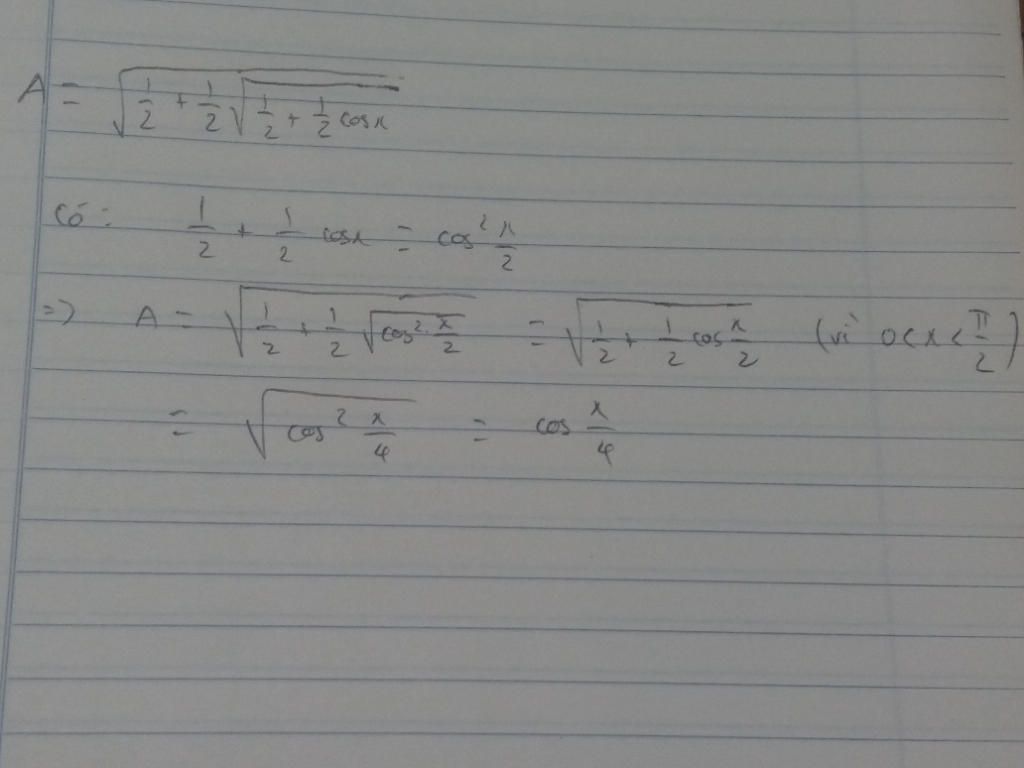 A = √(1/2 + 1/2 √(1/2 + 1/2 cosx))
Có: 1/2 + 1/2 cosx = cos² x/2
=> A = √(1/2 + 1/2 √(cos² x/2)) = √(1/2 + 1/2 cos x/2) (vì 0 < x < π/2)
= √(cos² x/4) = cos x/4